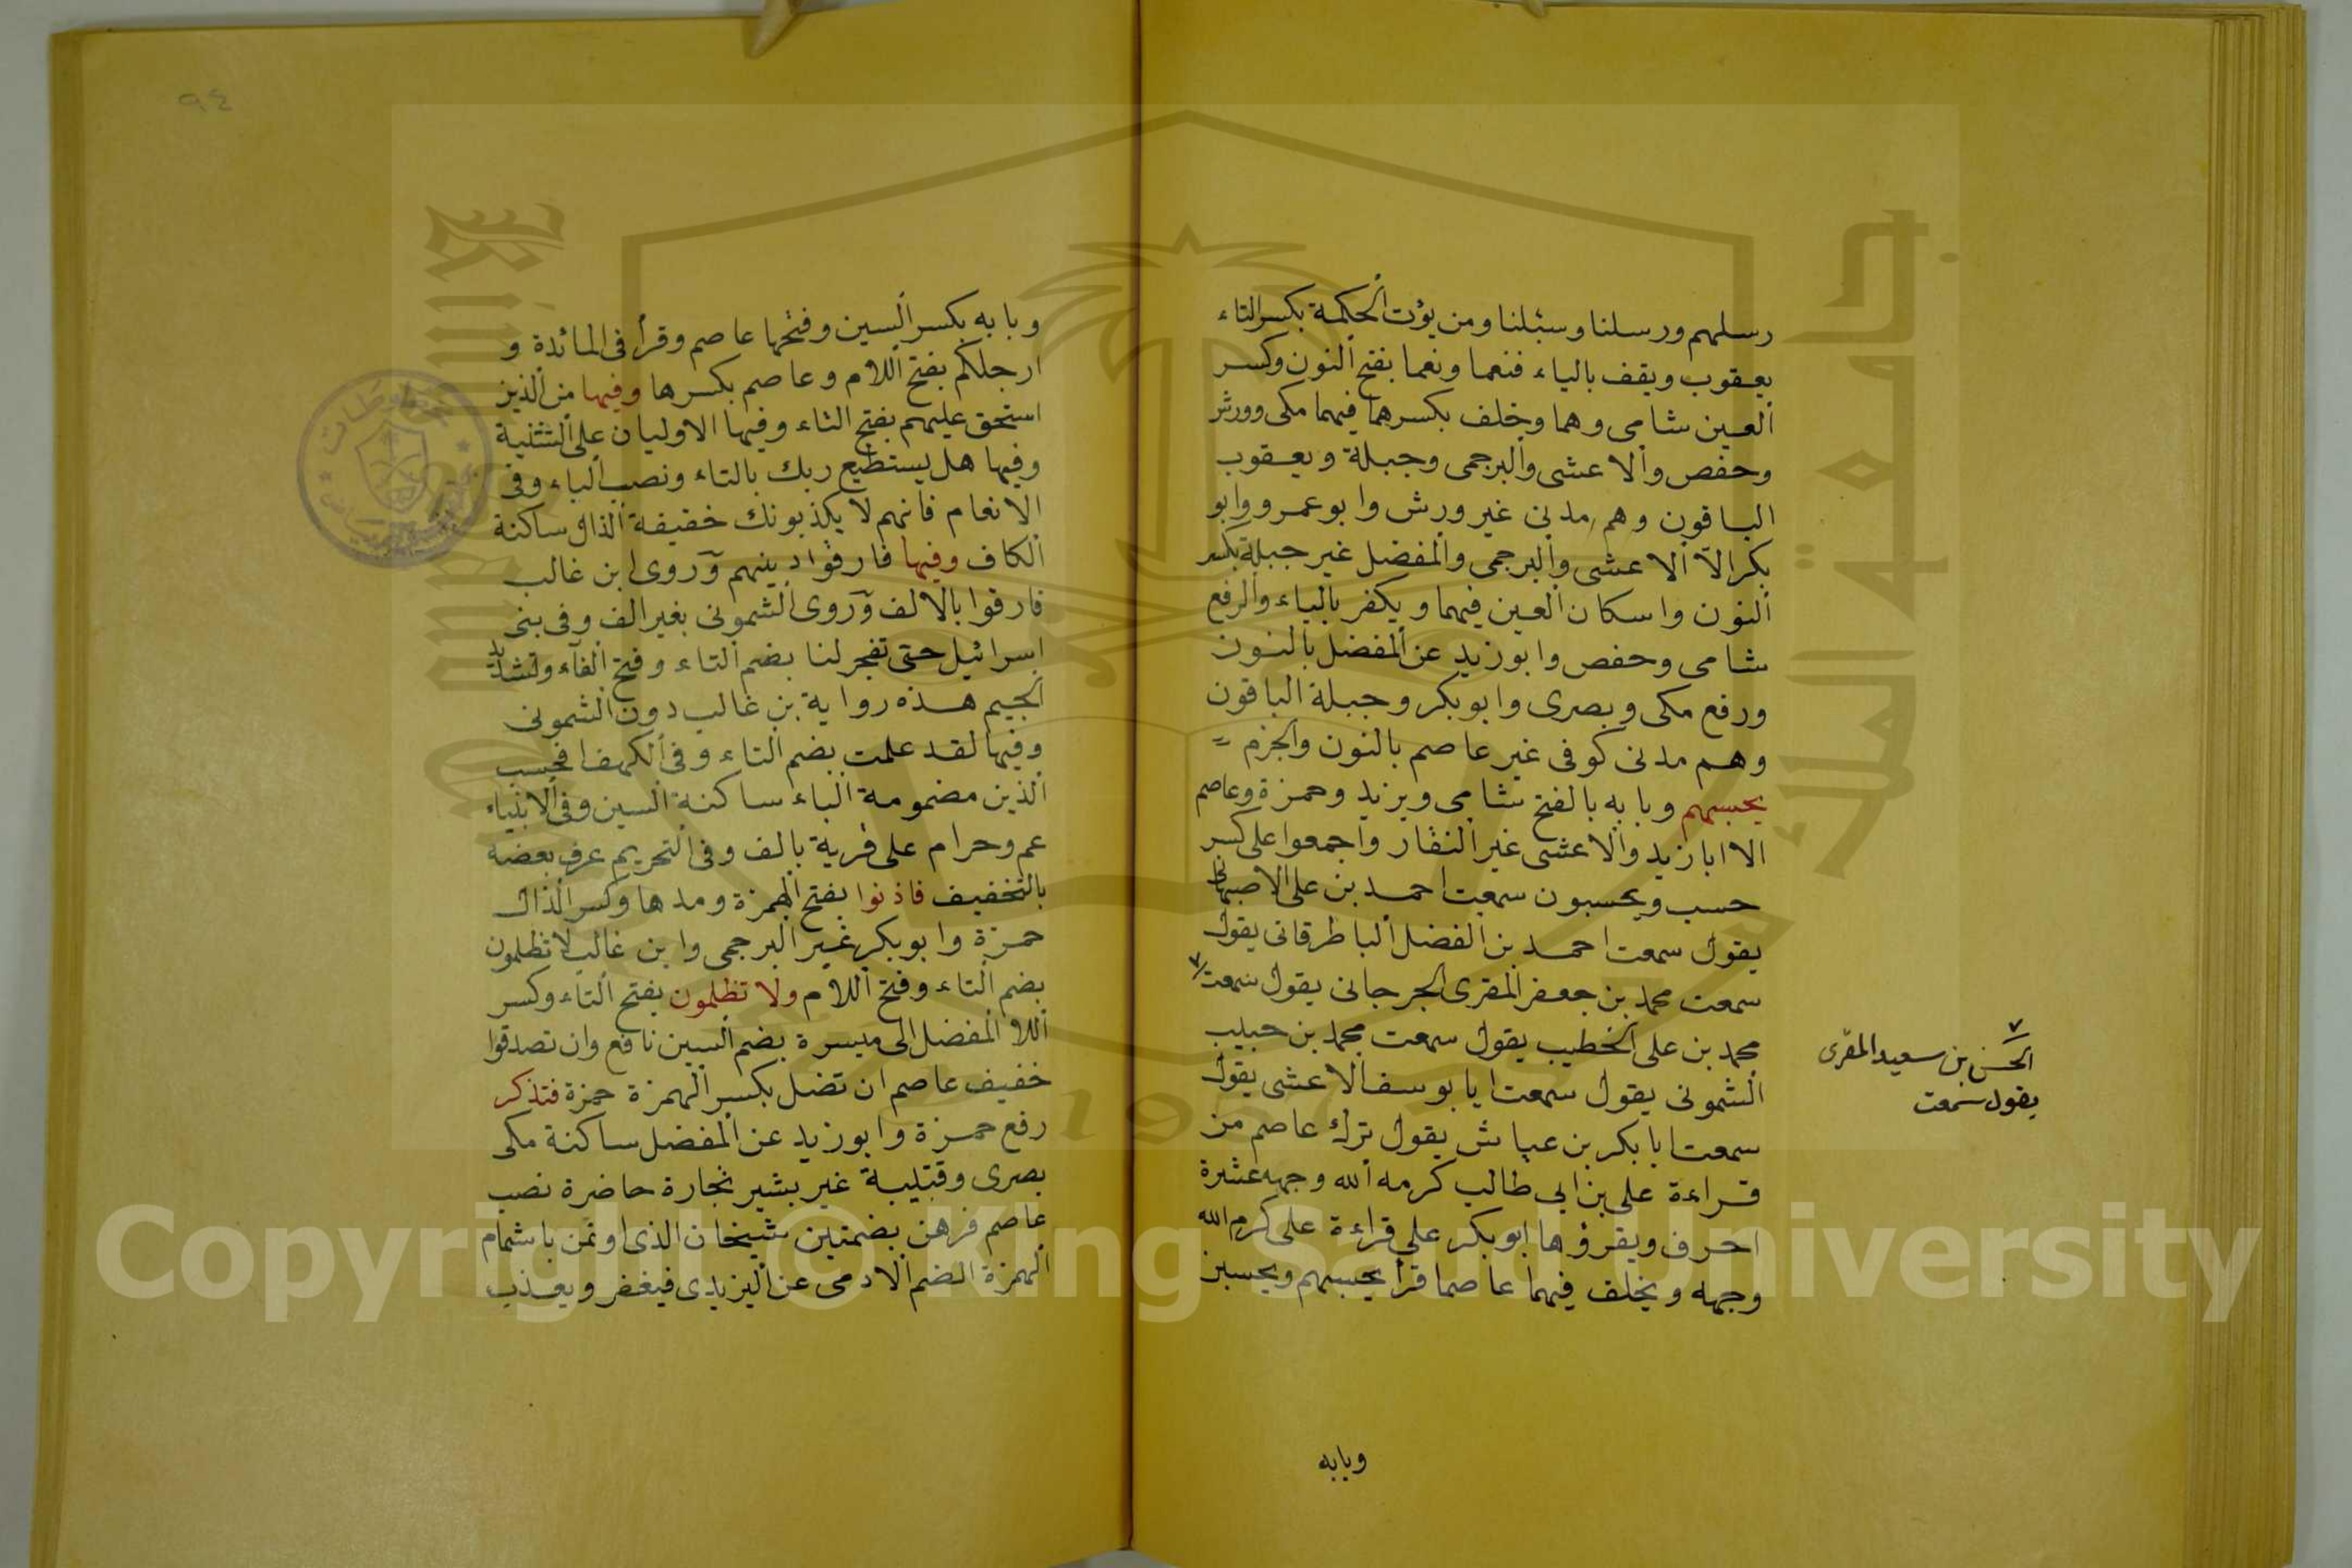 رسلهم ورسلنا وسبلنا ومن يؤت الحكمة بكسر التاء
يعقوب ويقف بالياء فنعما ونعما بفتح النون وكسر
العين شامى وهما وخلف بكسرهما فيهما مكى وورش
وحفص والاعشى والبرجمى وجبلة ويعقوب
الباقون وهم مدنى غير ورش وابو عمرو وابو
بكر الا الاعشى والبرجمى والمفضل غير جبلة بكسر
النون واسكان العين فيهما ويكفر بالياء والرفع
شامى وحفص وابو زيد عن المفضل بالنون
ورفع مكى وبصرى وابو بكر وجبلة الباقون
وهم مدنى كوفى غير عاصم بالنون والجزم
يحسبهم وبابه بالفتح شامى ويزيد وحمزة وعاصم
الا ابا زيد والاعشى غير النقار واجمعوا على كسر
حسب ويحسبون سمعت احمد بن على الاصبهانى
يقول سمعت احمد بن الفضل الباطرقانى يقول
سمعت محمد بن جعفر المقرى الجرجانى يقول سمعت
محمد بن على الخطيب يقول سمعت محمد بن حبيب
الشمونى يقول سمعت ابا يوسف الاعشى يقول
سمعت ابا بكر بن عياش يقول ترك عاصم من
قراءة على بن ابى طالب كرمه الله وجهه عشرة
احرف ويقرؤها ابو بكر على قراءة على كرم الله
وجهه ويخلف فيهما عاصما قرأ يحسبهم ويحسبن
وبابه
الحسن بن سعيد المقرى
يقول سمعت
٩٤
وبابه بكسر السين وفتحها عاصم وقرأ فى المائدة و
ارجلكم بفتح اللام وعاصم بكسرها وفيها من الذين
استحق عليهم بفتح التاء وفيها الاوليان على التثنية
وفيها هل يستطيع ربك بالتاء ونصب الباء وفى
الانعام فانهم لا يكذبونك خفيفة الذال ساكنة
الكاف وفيها فارقوا دينهم وروى ابن غالب
فارقوا بالالف وروى الشمونى بغير الف وفى بنى
اسرائيل حتى تفجر لنا بضم التاء وفتح الفاء وتشديد
الجيم هذه رواية بن غالب دون الشمونى
وفيها لقد علمت بضم التاء وفى الكهف افحسب
الذين مضمومة الباء ساكنة السين وفى الانبياء
عم وحرام على قرية بالف وفى التحريم عرف بعضه
بالتخفيف فاذنوا بفتح الهمزة ومدها وكسر الذال
حمزة وابو بكر غير البرجمى وابن غالب لا تظلمون
بضم التاء وفتح اللام ولا تظلمون بفتح التاء وكسر
اللا المفضل الى ميسرة بضم السين نافع وان تصدقوا
خفيف عاصم ان تضل بكسر الهمزة حمزة فتذكر
رفع حمزة وابو زيد عن المفضل ساكنة مكى
بصرى وقتيبة غير بشير تجارة حاضرة نصب
عاصم فرهن بضمتين شيخان الذى اوتمن باشمام
الهمزة الضم الادمى عن اليزيدى فيغفر ويعذب
Copyright © King Saud University